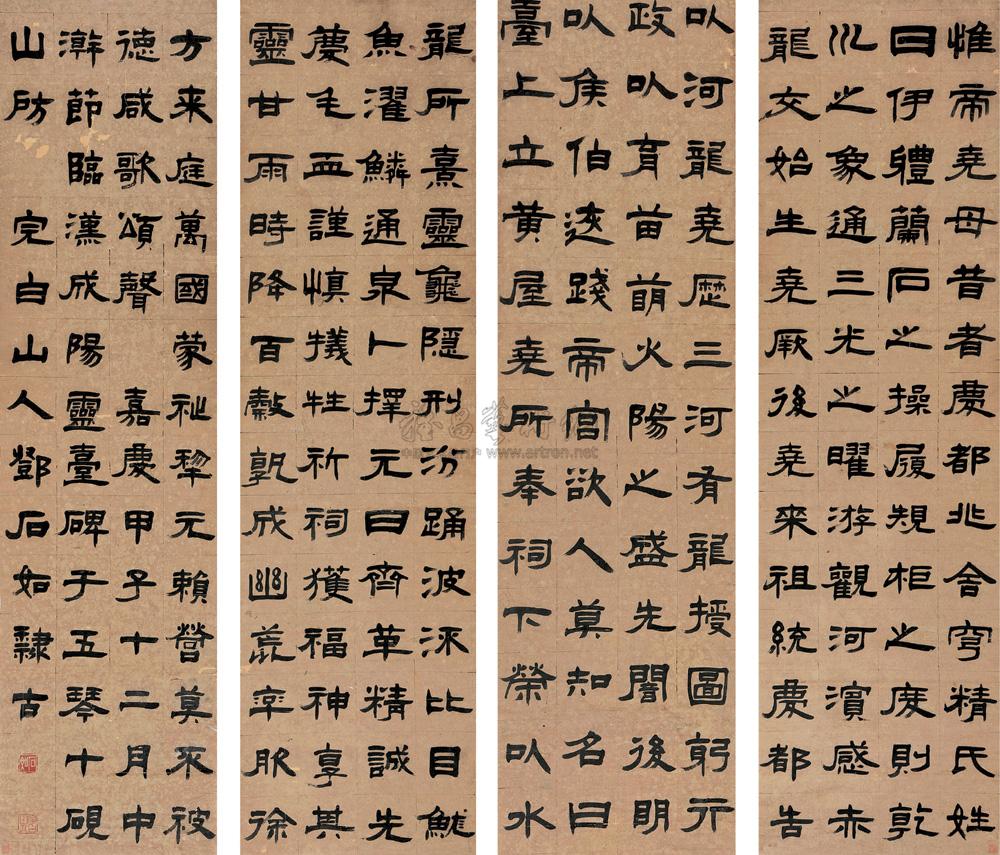 惟帝堯母昔者慶都兆舍穹精氏姓
曰伊體蘭石之操履規柜之度則乾
巛之象通三光之曜游觀河濱感赤
龍交始生堯厥後堯來祖統慶都告
以河龍堯歷三河有龍授圖躬行
政以育苗萌火陽之盛先闇後明
以侯伯踐帝宮欲人莫知名曰
臺上立黃屋堯所奉祠下榮以水
龍所熹靈龜隱刑汾踊波泳比目
魚濯鱗通泉卜擇元日齊革精誠先
慶毛血謹慎犧牲祈祠獲福神享其
靈甘雨時降百穀孰成幽荒率服徐
方來庭萬國蒙祉黎元賴營莫不被
德咸歌頌聲 嘉慶甲子十二月中
澣節臨漢成陽靈臺碑于五琴十硯
山房 完白山人鄧石如隸古
www.artron.net